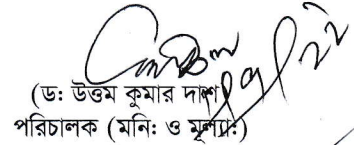 (ড: উত্তম কুমার দাশ)
পরিচালক (মনি: ও মূল্যা:)